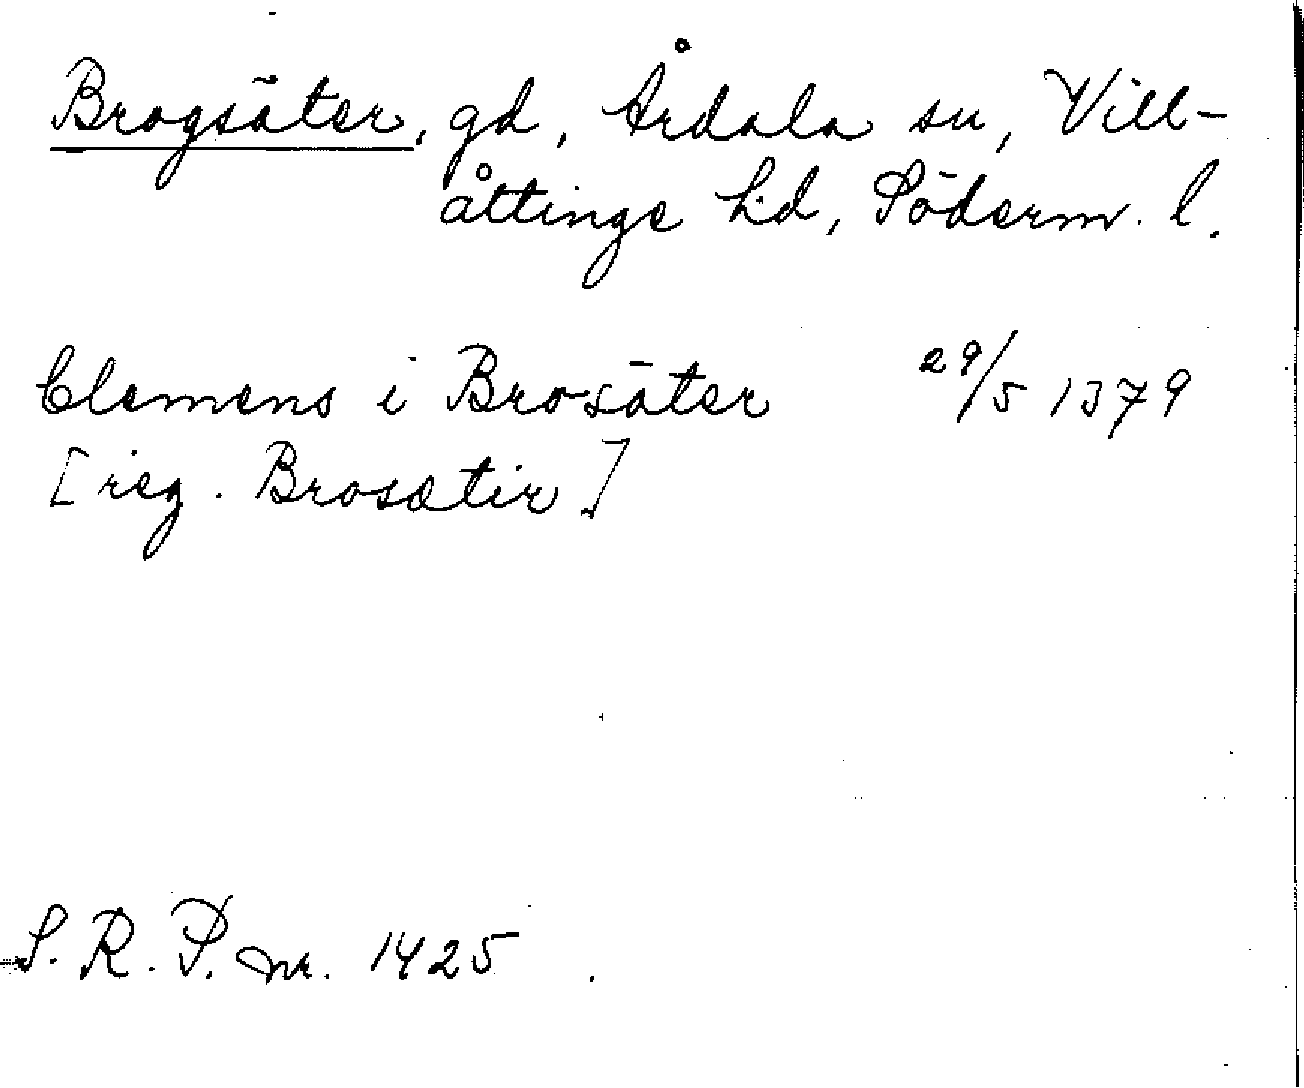 Brogsäter, gd, Årdala sn, Vill-
åttinge hd, Söderm. l.
Clemens i Brosäter 29/5 1379
[reg. Brosætir]
S. R. P. nr. 1425